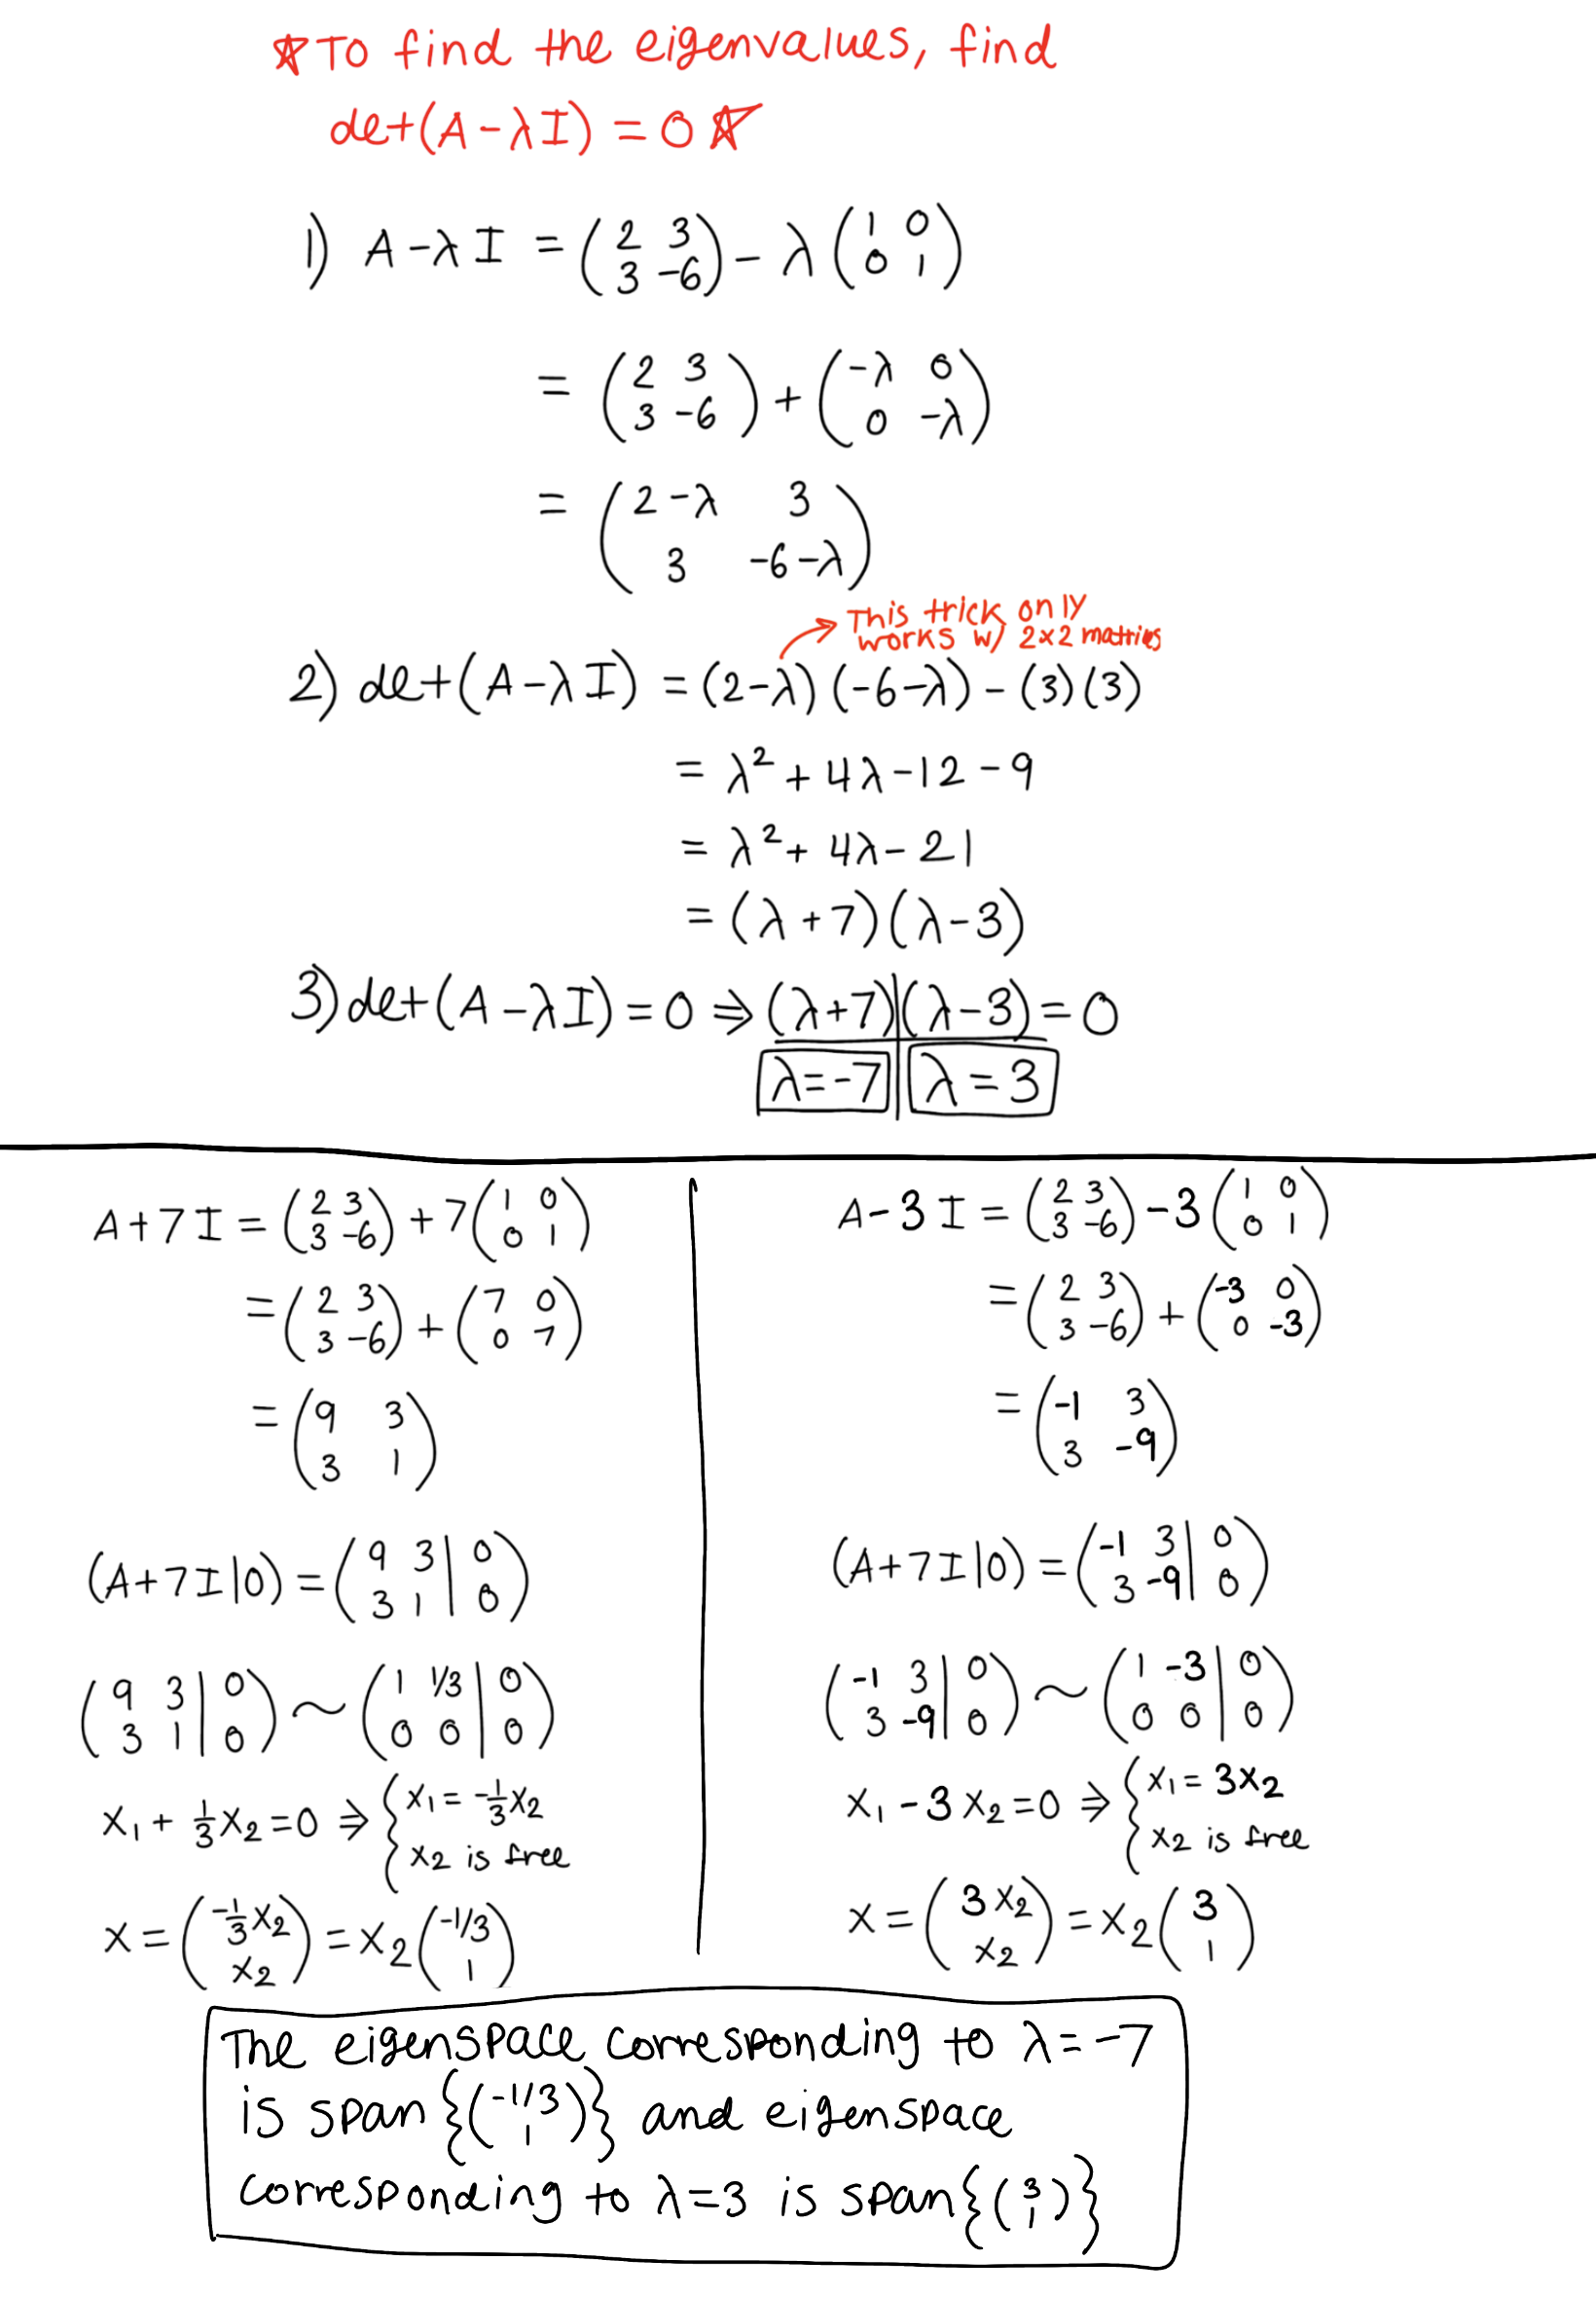 ☆ To find the eigenvalues, find
det(A-λI) = 0 ☆
1) A-λI = (2 3; 3 -6) - λ(1 0; 0 1)
= (2 3; 3 -6) + (-λ 0; 0 -λ)
= (2-λ 3; 3 -6-λ)
This trick only
works w/ 2x2 matrices
2) det(A-λI) = (2-λ)(-6-λ) - (3)(3)
= λ² + 4λ - 12 - 9
= λ² + 4λ - 21
= (λ+7)(λ-3)
3) det(A-λI) = 0 ⇒ (λ+7)|(λ-3) = 0
λ=-7 | λ=3
A+7I = (2 3; 3 -6) + 7(1 0; 0 1)
= (2 3; 3 -6) + (7 0; 0 7)
= (9 3; 3 1)
(A+7I|0) = (9 3 | 0; 3 1 | 0)
(9 3 | 0; 3 1 | 0) ~ (1 1/3 | 0; 0 0 | 0)
x₁ + 1/3 x₂ = 0 ⇒ { x₁ = -1/3 x₂
x₂ is free
x = (-1/3 x₂; x₂) = x₂(-1/3; 1)
A-3I = (2 3; 3 -6) - 3(1 0; 0 1)
= (2 3; 3 -6) + (-3 0; 0 -3)
= (-1 3; 3 -9)
(A+7I|0) = (-1 3 | 0; 3 -9 | 0)
(-1 3 | 0; 3 -9 | 0) ~ (1 -3 | 0; 0 0 | 0)
x₁ - 3x₂ = 0 ⇒ { x₁ = 3x₂
x₂ is free
x = (3x₂; x₂) = x₂(3; 1)
The eigenspace corresponding to λ=-7
is span{(-1/3; 1)} and eigenspace
corresponding to λ=3 is span{(3; 1)}